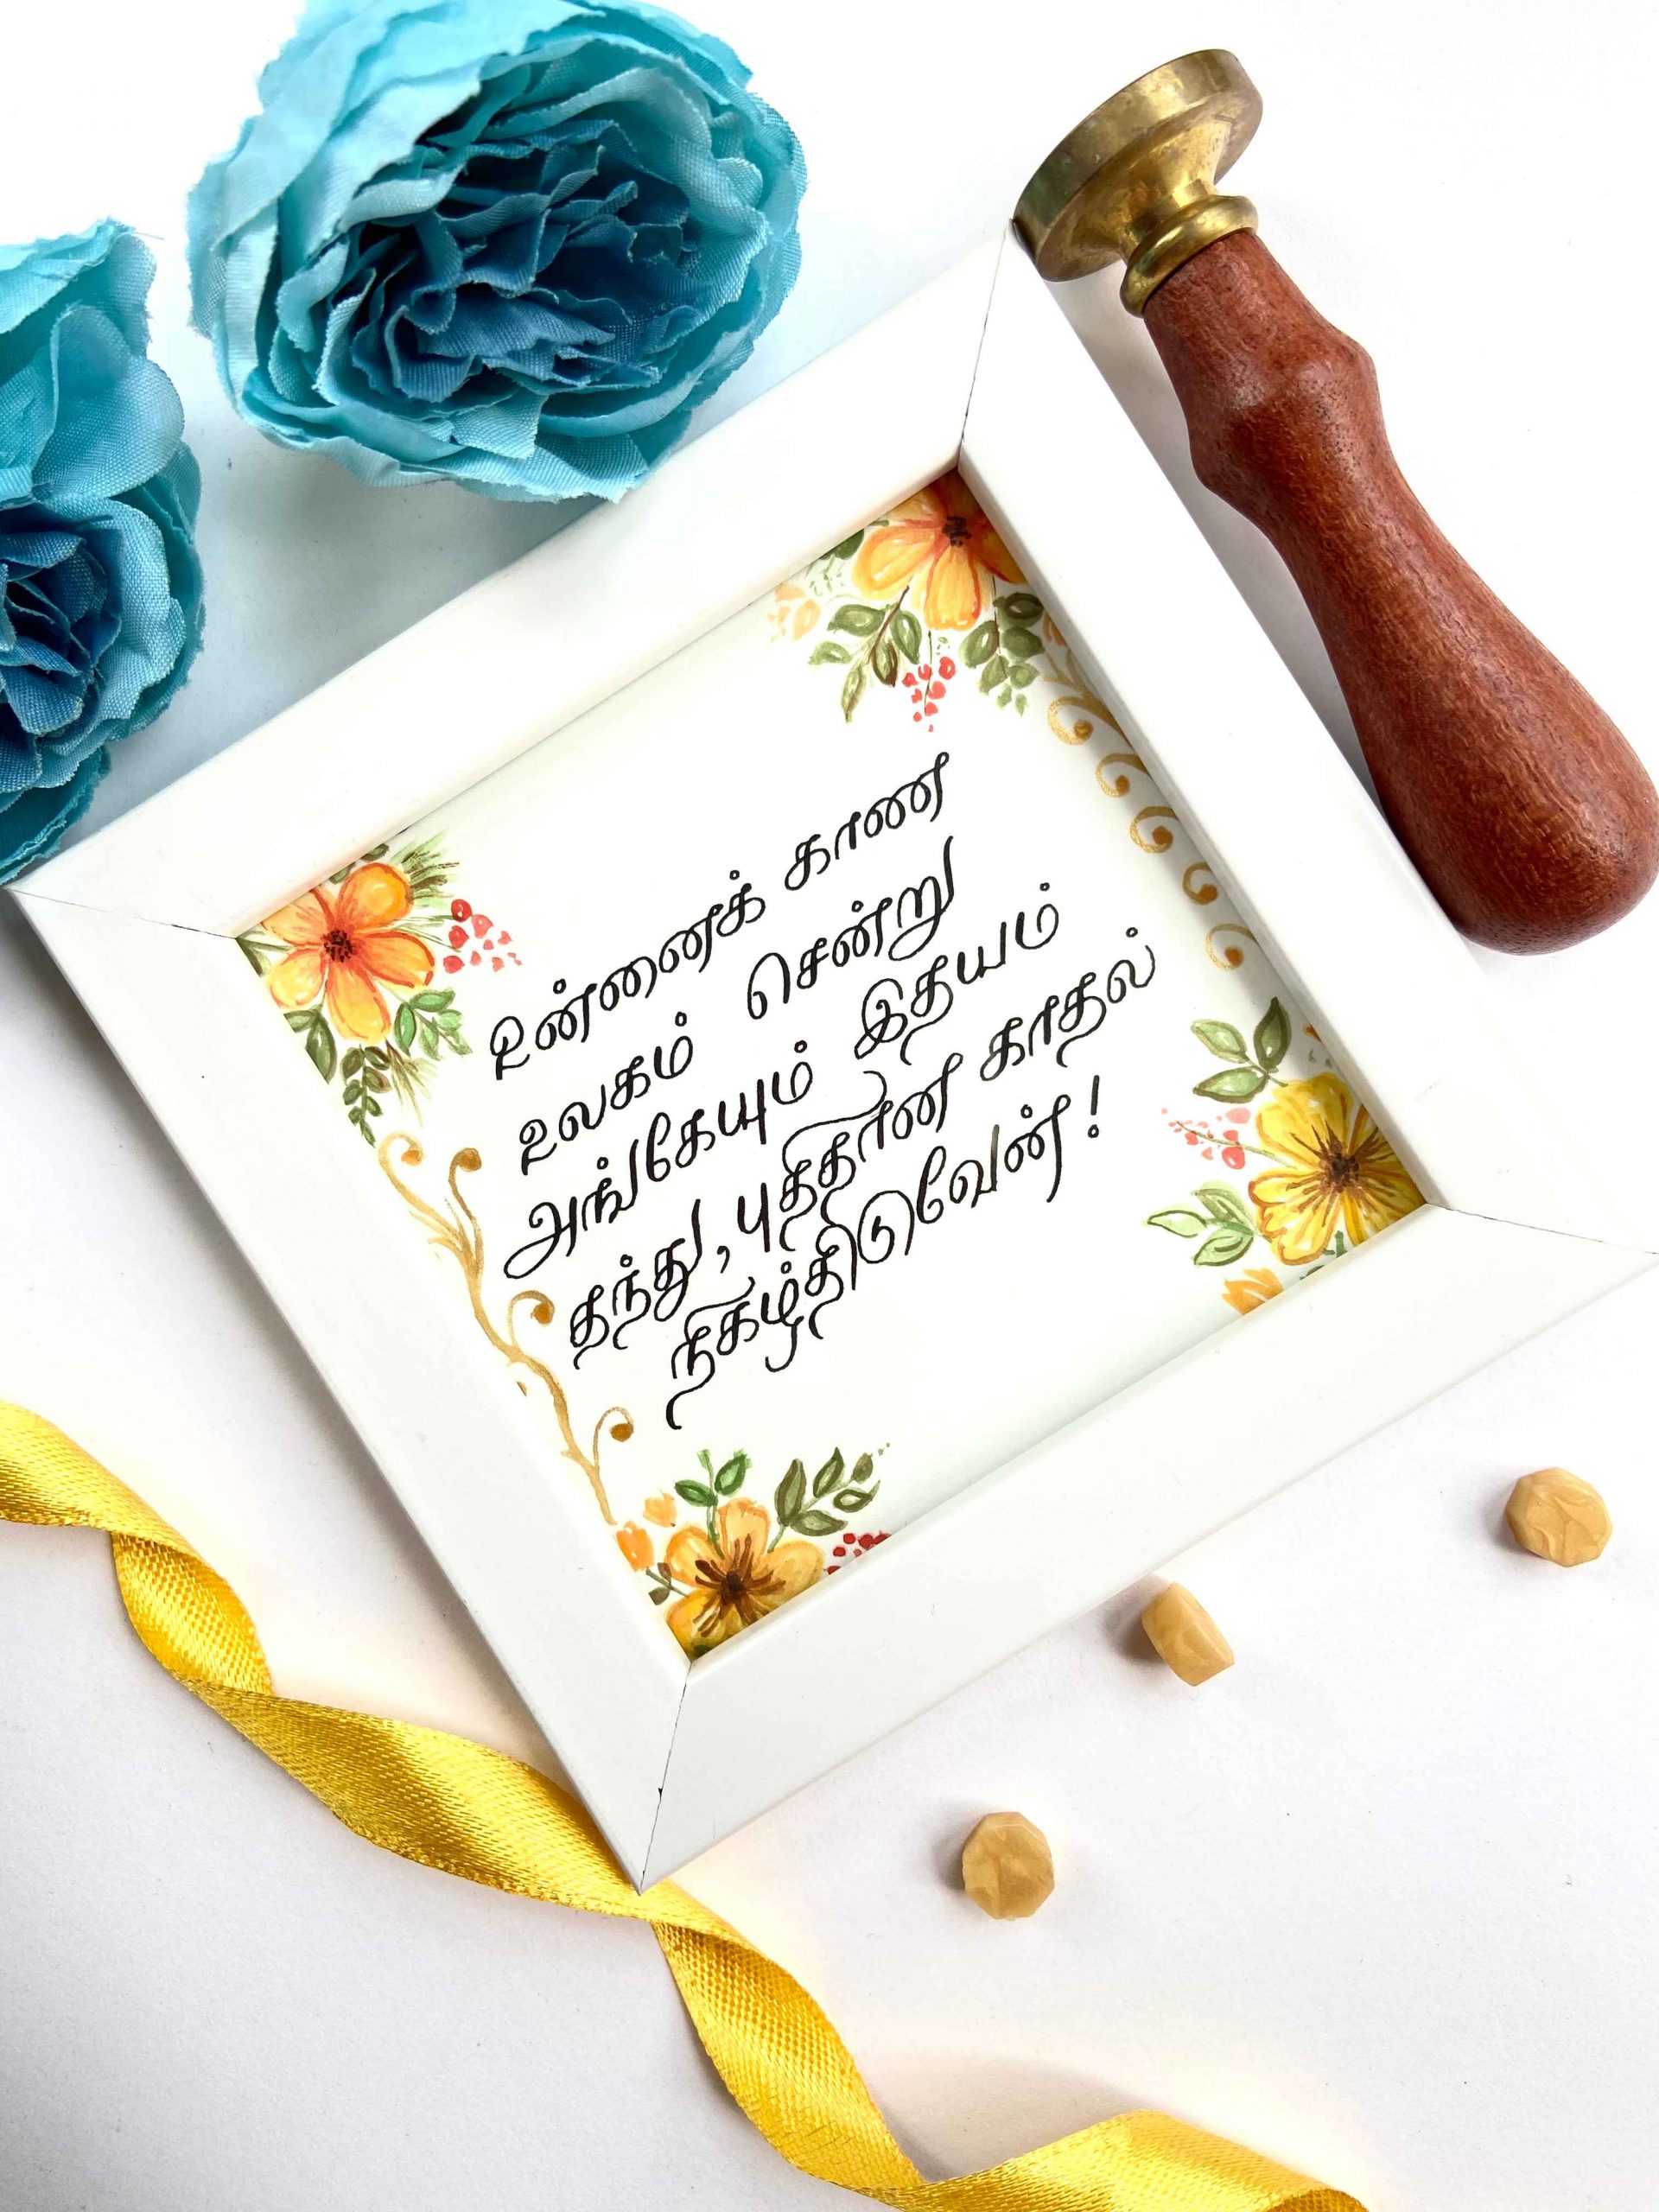 உன்னைக் காண
உலகம் சென்று
அங்கேயும் இதயம்
தந்து, புதிதான காதல்
நிகழ்திடுவேன்!